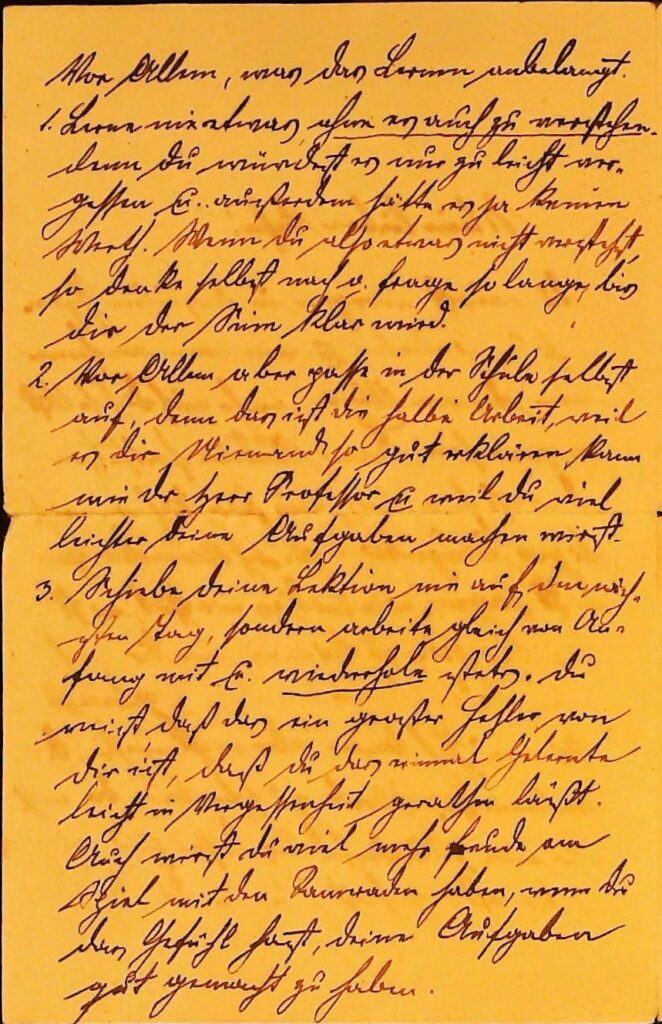 Vor Allem, was das Lernen anbelangt.
1. Lerne nie etwas, ohne es auch zu verstehen,
denn du würdest es nur zu leicht ver-
gessen u. außerdem hätte es ja keinen
Werth. Wenn du also etwas nicht verstehst,
so denke selbst nach o. frage so lange, bis
dir der Sinn klar wird.
2. Vor Allem aber passe in der Schule selbst
auf, denn das ist die halbe Arbeit, weil
es dir Niemand so gut erklären kann
wie der Herr Professor u weil du viel
leichter deine Aufgaben machen wirst.
3. Schiebe deine Lektion nie auf den näch-
sten Tag, sondern arbeite gleich von An-
fang mit u. wiederhole stets. Du
weißt, daß das ein großer Fehler von
dir ist, daß du das einmal Gelernte
leicht in Vergessenheit gerathen läßt.
Auch wirst du viel mehr Freude am
Spiel mit den Kameraden haben, wenn du
das Gefühl hast, deine Aufgaben
gut gemacht zu haben.